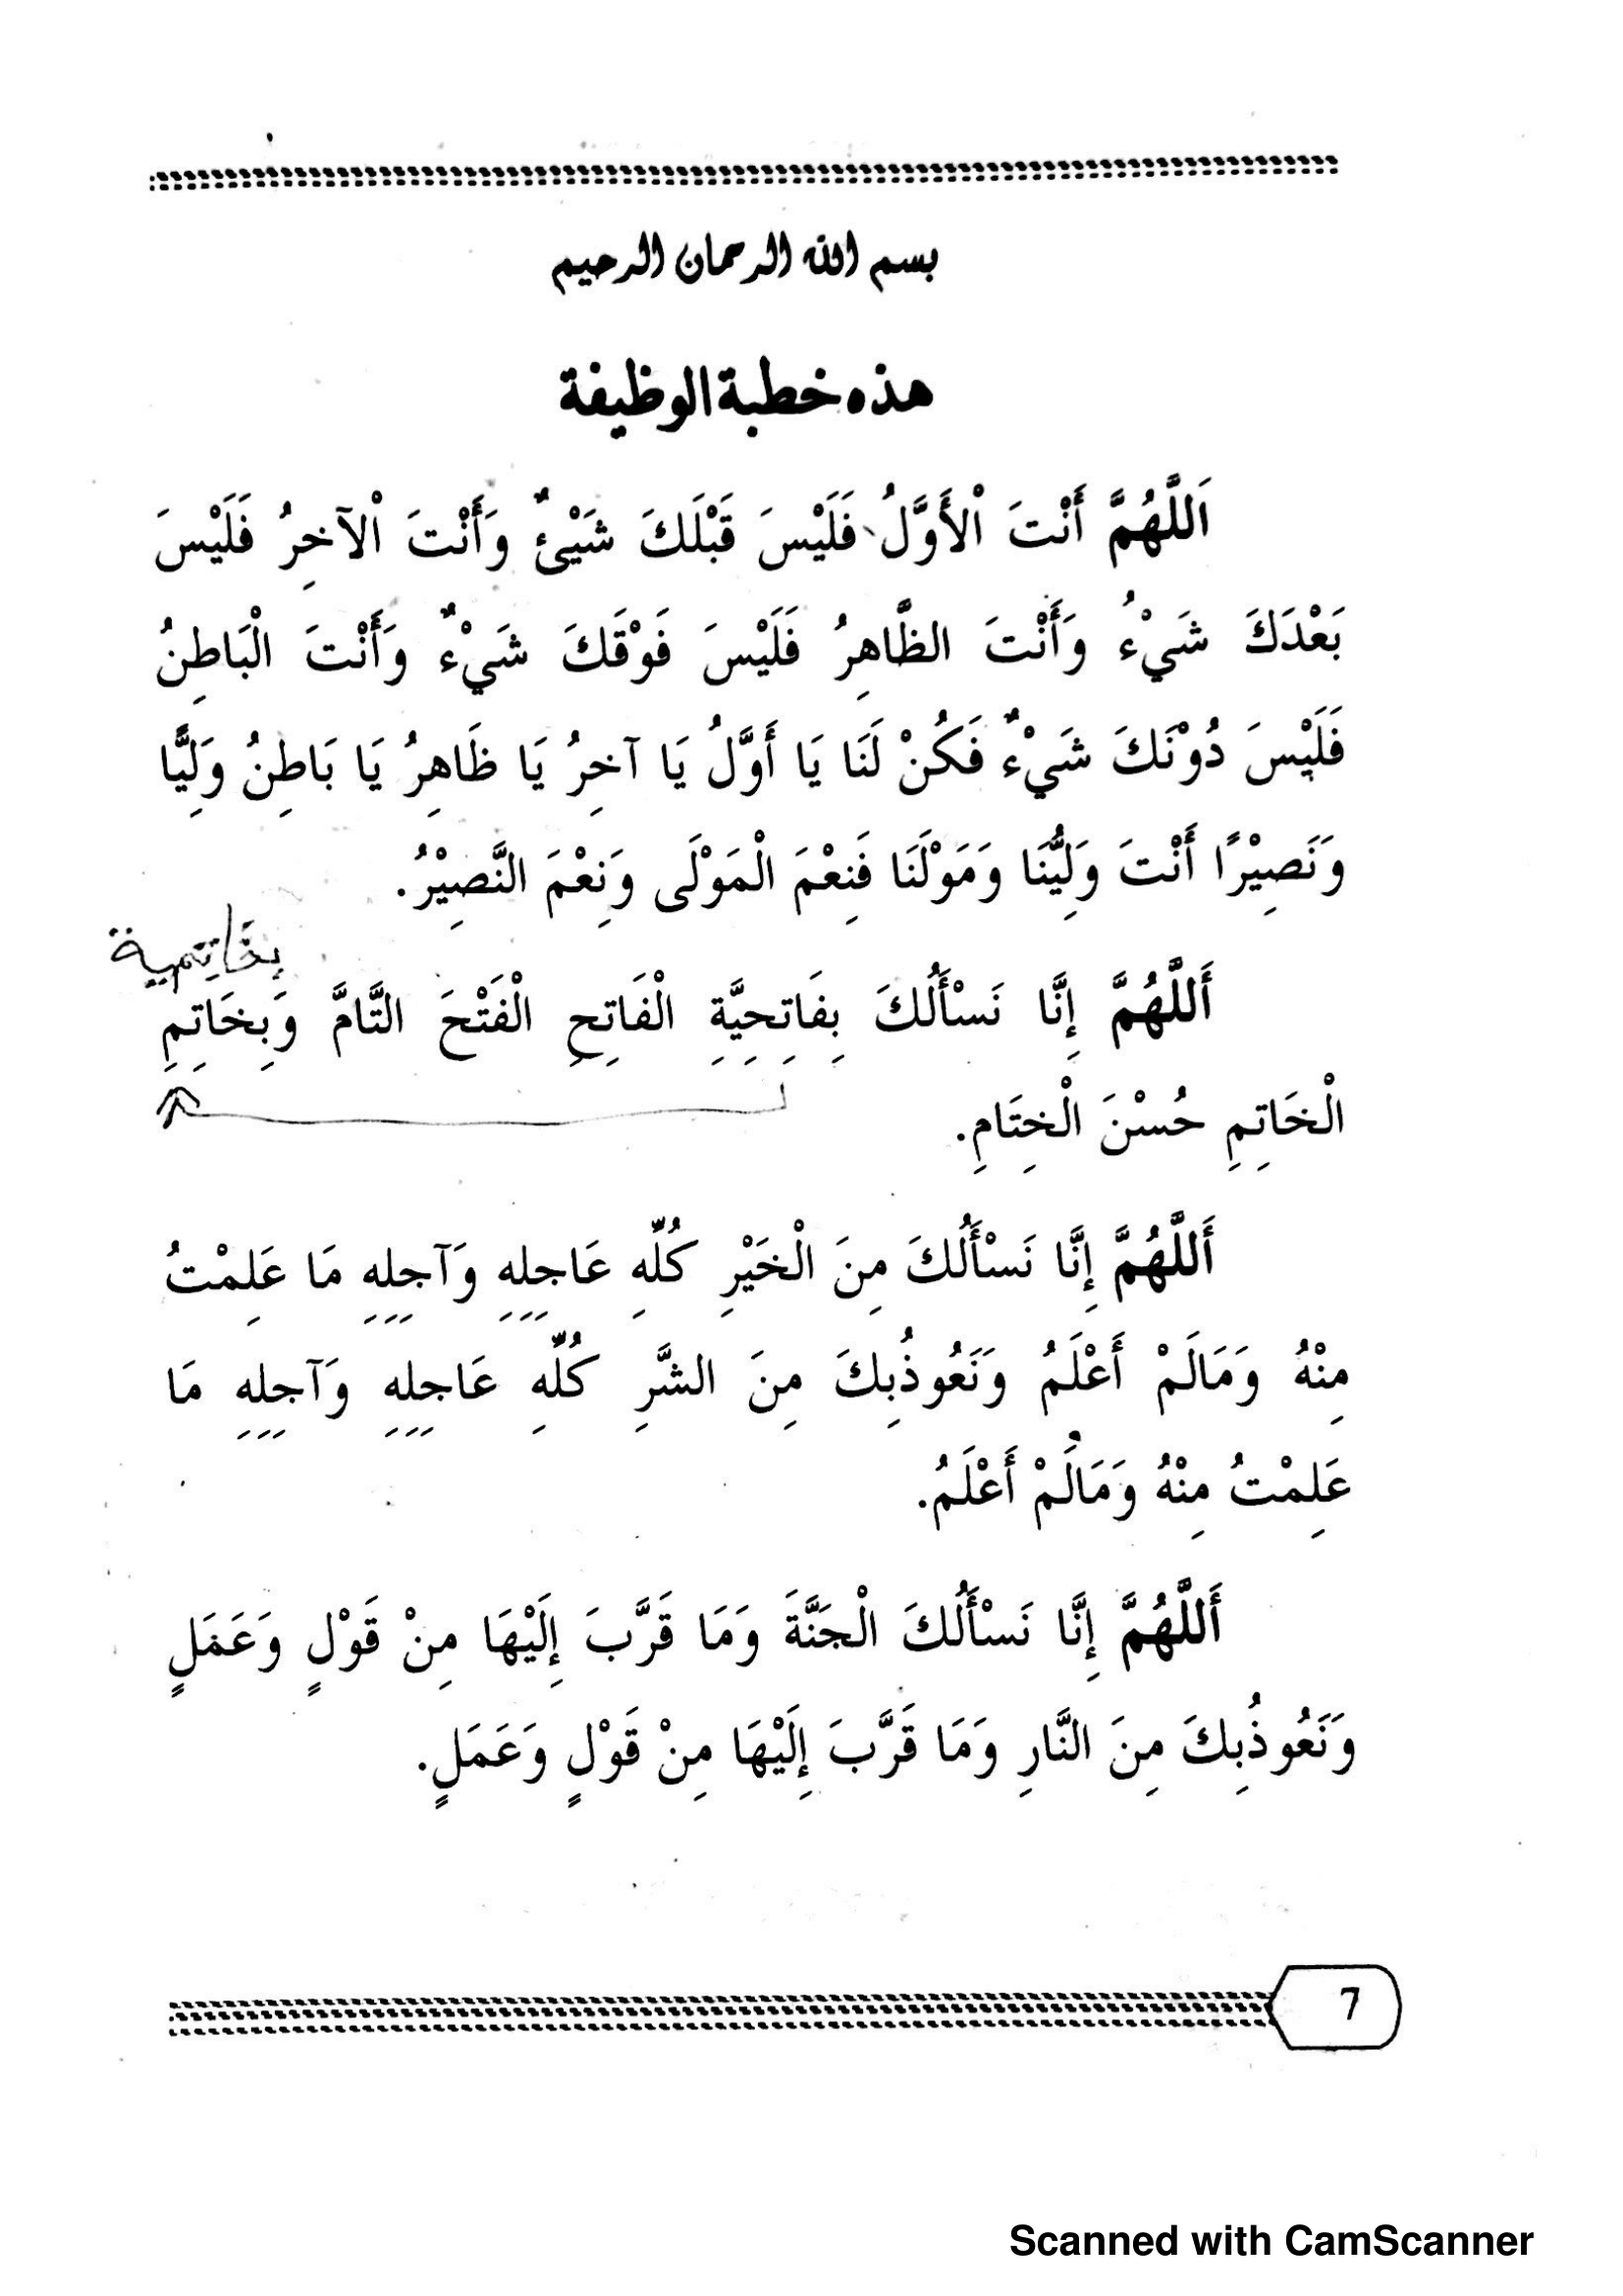 بسم الله الرحمان الرحيم
هذه خطبة الوظيفة
اَللَّهُمَّ أَنْتَ اْلأَوَّلُ فَلَيْسَ قَبْلَكَ شَيْئٌ وَأَنْتَ اْلآخِرُ فَلَيْسَ
بَعْدَكَ شَيْءُ وَأَنْتَ الظَّاهِرُ فَلَيْسَ فَوْقَكَ شَيْءٌ وَأَنْتَ الْبَاطِنُ
فَلَيْسَ دُوْنَكَ شَيْءٌ فَكُنْ لَنَا يَا أَوَّلُ يَا آخِرُ يَا ظَاهِرُ يَا بَاطِنُ وَلِيًّا
وَنَصِيْرًا أَنْتَ وَلِيُّنَا وَمَوْلَنَا فَنِعْمَ الْمَوْلَى وَنِعْمَ النَّصِيْرُ.
بِخَاتِمِية
أَللَّهُمَّ إِنَّا نَسْأَلُكَ بِفَاتِحِيَّةِ الْفَاتِحِ الْفَتْحَ التَّامَّ وَبِخَاتِمِ
الْخَاتِمِ حُسْنَ الْخِتَامِ.
أَللَّهُمَّ إِنَّا نَسْأَلُكَ مِنَ الْخَيْرِ كُلِّهِ عَاجِلِهِ وَآجِلِهِ مَا عَلِمْتُ
مِنْهُ وَمَالَمْ أَعْلَمُ وَنَعُوذُبِكَ مِنَ الشَّرِ كُلِّهِ عَاجِلِهِ وَآجِلِهِ مَا
عَلِمْتُ مِنْهُ وَمَالَمْ أَعْلَمُ.
أَللَّهُمَّ إِنَّا نَسْأَلُكَ الْجَنَّةَ وَمَا قَرَّبَ إِلَيْهَا مِنْ قَوْلٍ وَعَمَلٍ
وَنَعُوذُبِكَ مِنَ النَّارِ وَمَا قَرَّبَ إِلَيْهَا مِنْ قَوْلٍ وَعَمَلٍ.
7
Scanned with CamScanner